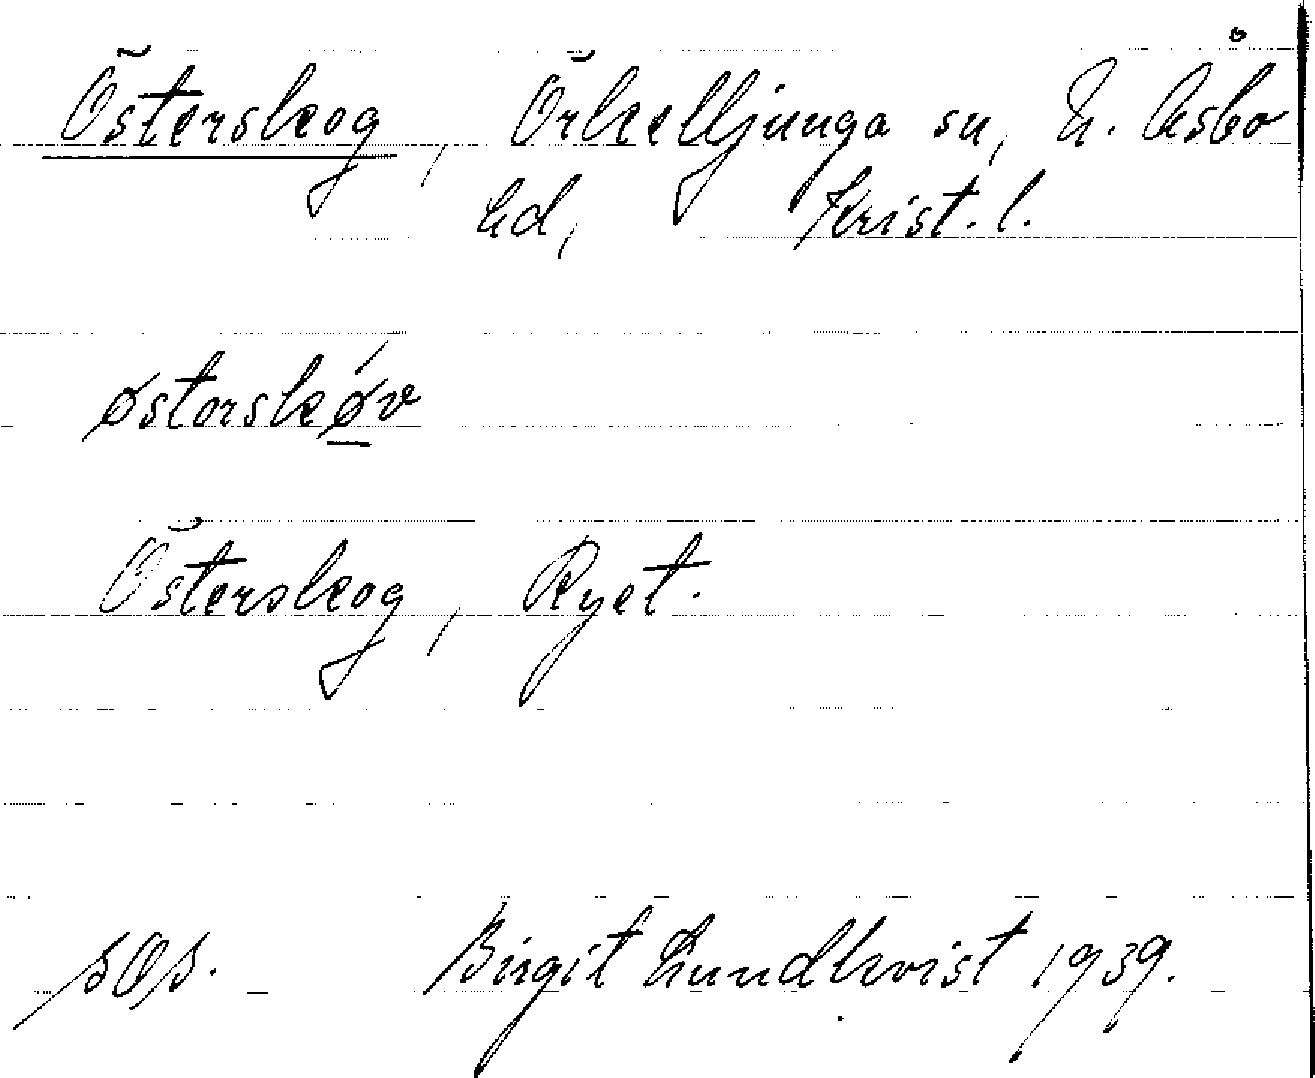 Österskog, Örkelljunga sn, N. Åsbo
hd, Krist. l.
østərskǿv
Österskog, Ryet.
Birgit Lundkvist 1939.